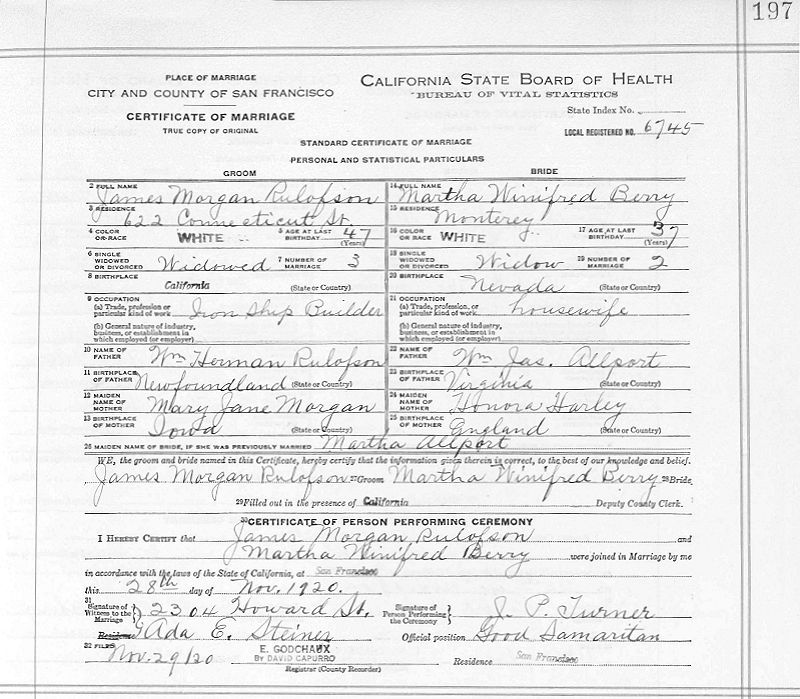 197
PLACE OF MARRIAGE
CITY AND COUNTY OF SAN FRANCISCO
CERTIFICATE OF MARRIAGE
TRUE COPY OF ORIGINAL
CALIFORNIA STATE BOARD OF HEALTH
BUREAU OF VITAL STATISTICS
State Index No.
LOCAL REGISTERED NO. 6745
STANDARD CERTIFICATE OF MARRIAGE
PERSONAL AND STATISTICAL PARTICULARS
GROOM BRIDE
2 FULL NAME James Morgan Rulofson 14 FULL NAME Martha Winifred Berry
3 RESIDENCE 622 Connecticut St. 15 RESIDENCE Monterey
4 COLOR OR RACE WHITE 5 AGE AT LAST BIRTHDAY 47 (Years) 16 COLOR OR RACE WHITE 17 AGE AT LAST BIRTHDAY 37 (Years)
6 SINGLE WIDOWED OR DIVORCED Widowed 7 NUMBER OF MARRIAGE 3 18 SINGLE WIDOWED OR DIVORCED Widow 19 NUMBER OF MARRIAGE 2
8 BIRTHPLACE California (State or Country) 20 BIRTHPLACE Nevada (State or Country)
9 OCCUPATION 21 OCCUPATION
(a) Trade, profession or particular kind of work Iron Ship Builder (a) Trade, profession, or particular kind of work housewife
(b) General nature of industry, business, or establishment in which employed (or employer) (b) General nature of industry, business, or establishment in which employed (or employer)
10 NAME OF FATHER Wm Herman Rulofson 22 NAME OF FATHER Wm Jas. Allport
11 BIRTHPLACE OF FATHER Newfoundland (State or Country) 23 BIRTHPLACE OF FATHER Virginia (State or Country)
12 MAIDEN NAME OF MOTHER Mary Jane Morgan 24 MAIDEN NAME OF MOTHER Honora Harley
13 BIRTHPLACE OF MOTHER Iowa (State or Country) 25 BIRTHPLACE OF MOTHER England (State or Country)
26 MAIDEN NAME OF BRIDE, IF SHE WAS PREVIOUSLY MARRIED Martha Allport
WE, the groom and bride named in this Certificate, hereby certify that the information given therein is correct, to the best of our knowledge and belief.
James Morgan Rulofson 27 Groom Martha Winifred Berry 28 Bride
29 Filled out in the presence of California Deputy County Clerk.
30 CERTIFICATE OF PERSON PERFORMING CEREMONY
I HEREBY CERTIFY that James Morgan Rulofson and
Martha Winifred Berry were joined in Marriage by me
in accordance with the laws of the State of California, at San Francisco
this 28th day of Nov. 1920.
31 Signature of Witness to the Marriage 2304 Howard St. Signature of Person Performing the Ceremony J. P. Turner
Residence Ada E. Steiner Official position Good Samaritan
32 FILED Nov. 29/20 E. GODCHAUX
BY DAVID CAPURRO Residence San Francisco
Registrar (County Recorder)